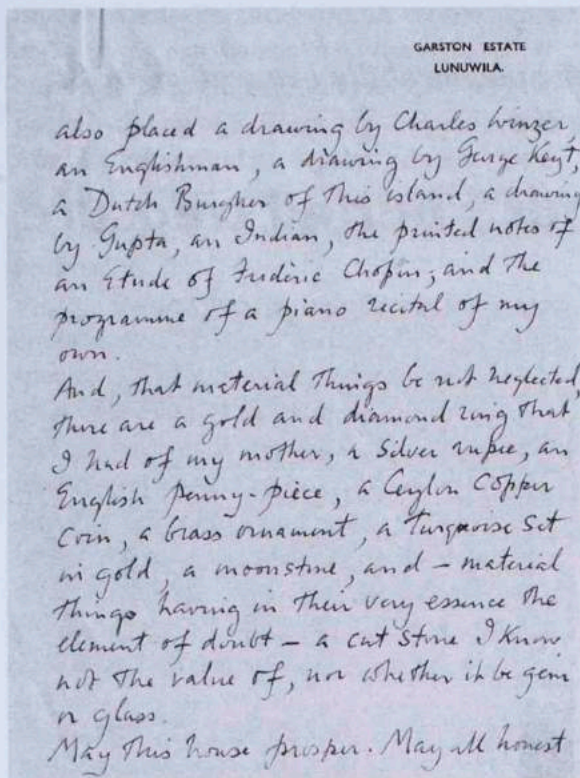 GARSTON ESTATE
LUNUWILA.
also placed a drawing by Charles Winzer,
an Englishman, a drawing by George Keyt,
a Dutch Burgher of this island, a drawing
by Gupta, an Indian, the printed notes of
an Etude of Frederic Chopin; and the
programme of a piano recital of my
own.
And, that material things be not neglected,
there are a gold and diamond ring that
I had of my mother, a silver rupee, an
English penny-piece, a Ceylon Copper
Coin, a brass ornament, a turquoise set
in gold, a moonstone, and – material
things having in their very essence the
element of doubt – a cut stone I know
not the value of, nor whether it be gem
or glass.
May this house prosper. May all honest